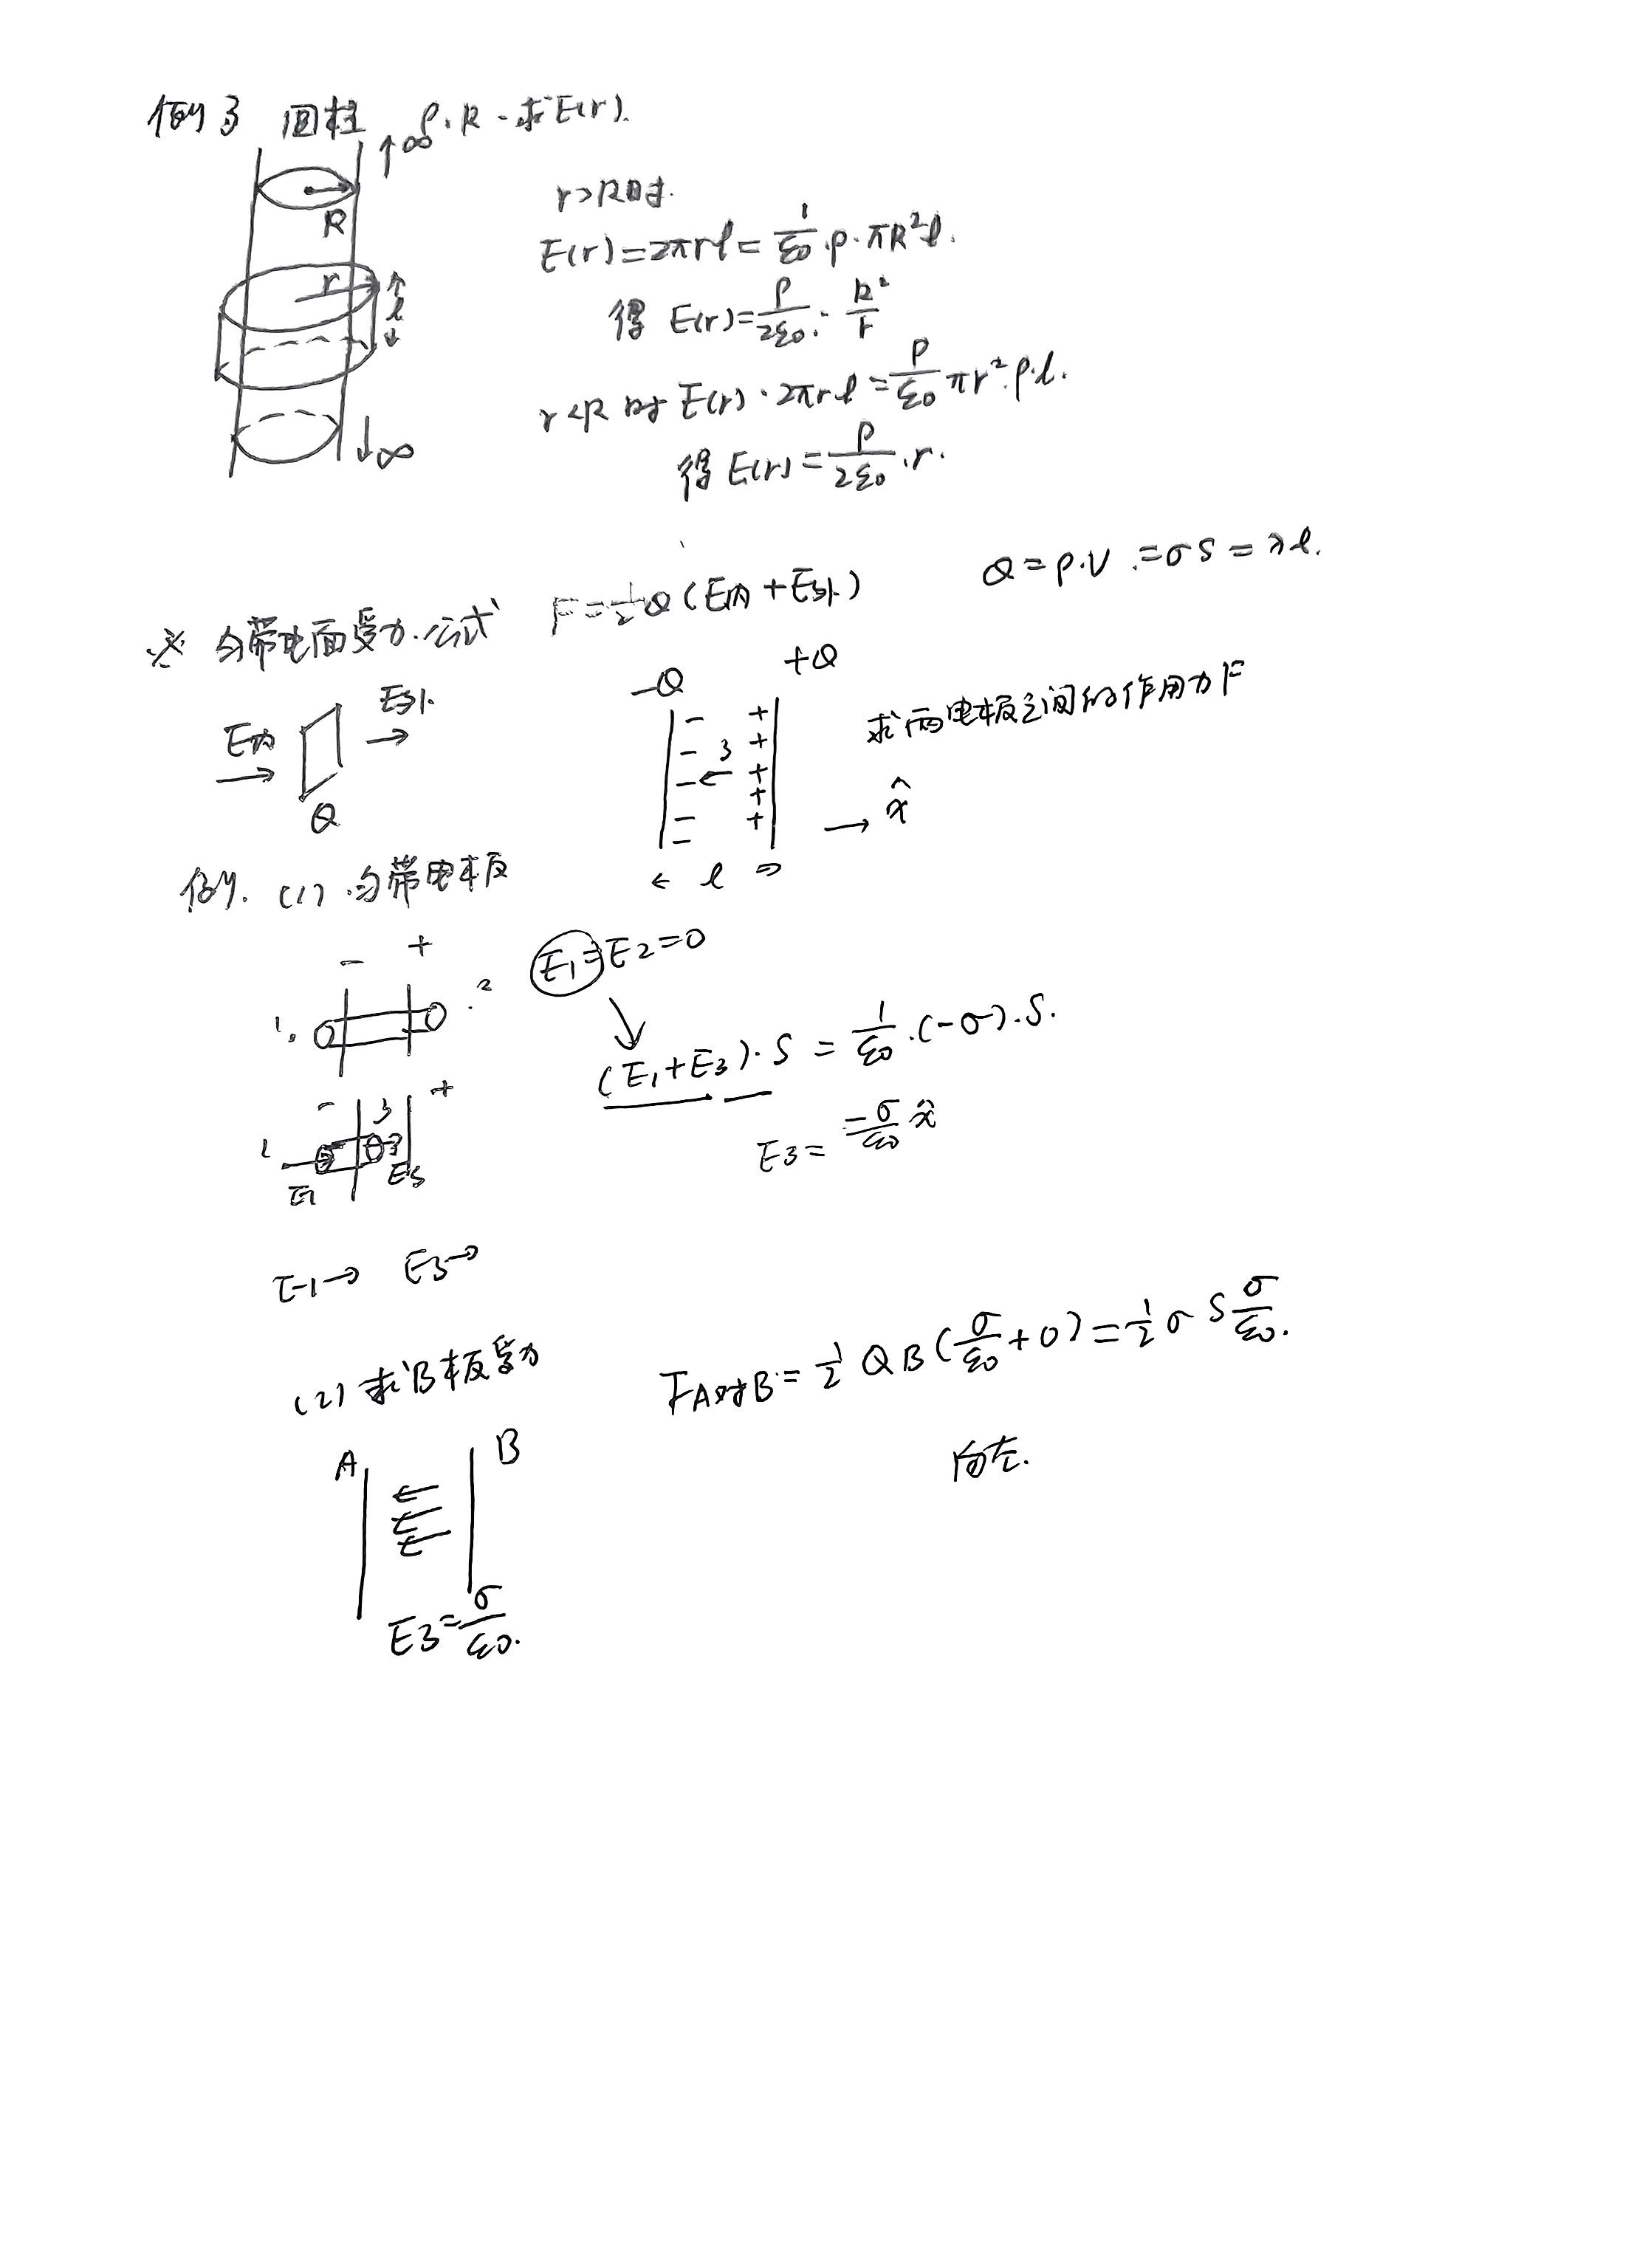 例3 圆柱 ρ.R.求E(r).
↑∞
R
r>R时.
E(r)=2πrl=1/ε0.ρ.πR²l.
r
l
得 E(r)=ρ/2ε0.R²/r
r<R时 E(r)·2πrl=ρ/ε0 πr².ρ.l.
↓∞
得 E(r)=ρ/2ε0.r.
Q=ρ.V.=σS=λl.
※ 匀带电面受力.公式 F=1/2Q(E内+E外)
E内→ E外→
Q
-Q +Q
3
求两电板之间的作用力F
→ x̂
← l →
例.(1).匀带电板
- +
1. .2
E1=E2=0
(E1+E3).S=1/ε0.(-σ).S.
- 3 +
1
E1 E3
E3=-σ/ε0 x̂
E1→ E3→
(2)求B板受力
FA对B=1/2 QB(σ/ε0+0)=1/2σSσ/ε0.
向左.
A B
E3=σ/ε0.